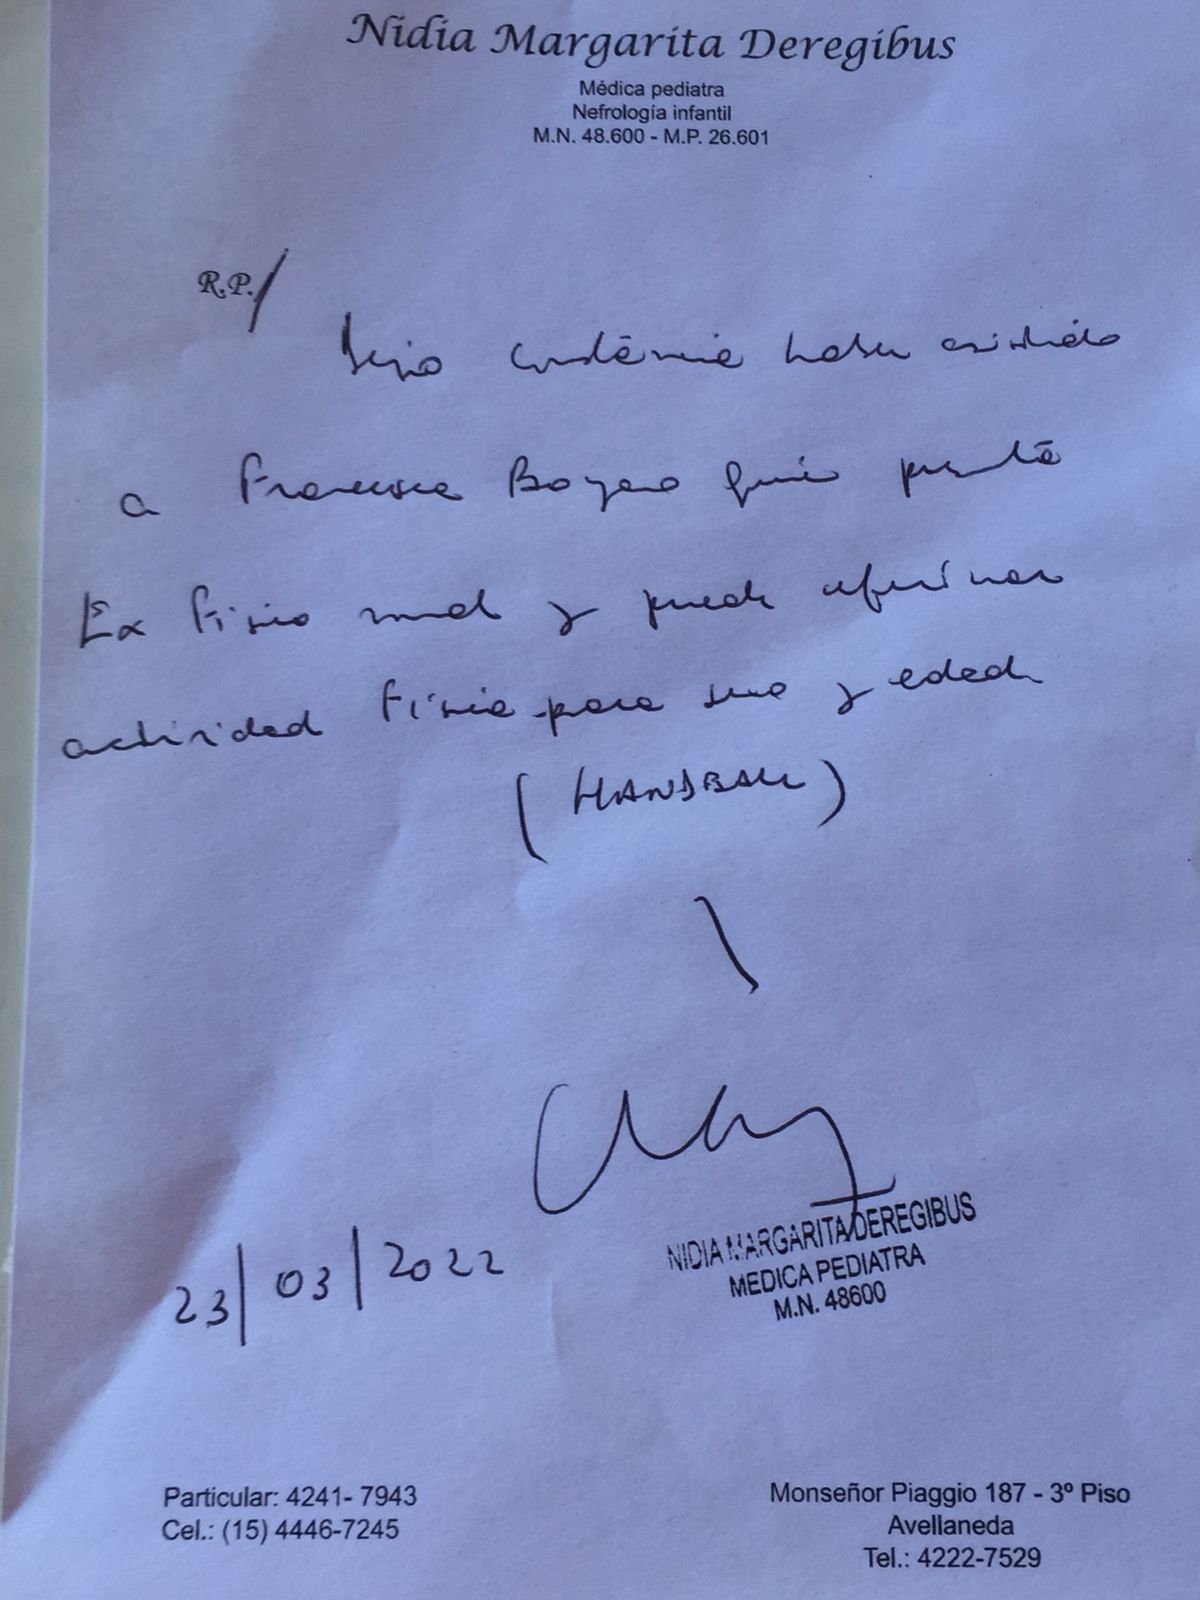 Nidia Margarita Deregibus
Médica pediatra
Nefrología infantil
M.N. 48.600 - M.P. 26.601
R.P./
Dejo constancia haber asistido
a Francisca Boyero quien presentó
Ex físico normal y puede efectuar
actividad física para sexo y edad
(HANDBALL)
NIDIA MARGARITA DEREGIBUS
MEDICA PEDIATRA
M.N. 48600
23/03/2022
Particular: 4241- 7943
Cel.: (15) 4446-7245
Monseñor Piaggio 187 - 3º Piso
Avellaneda
Tel.: 4222-7529